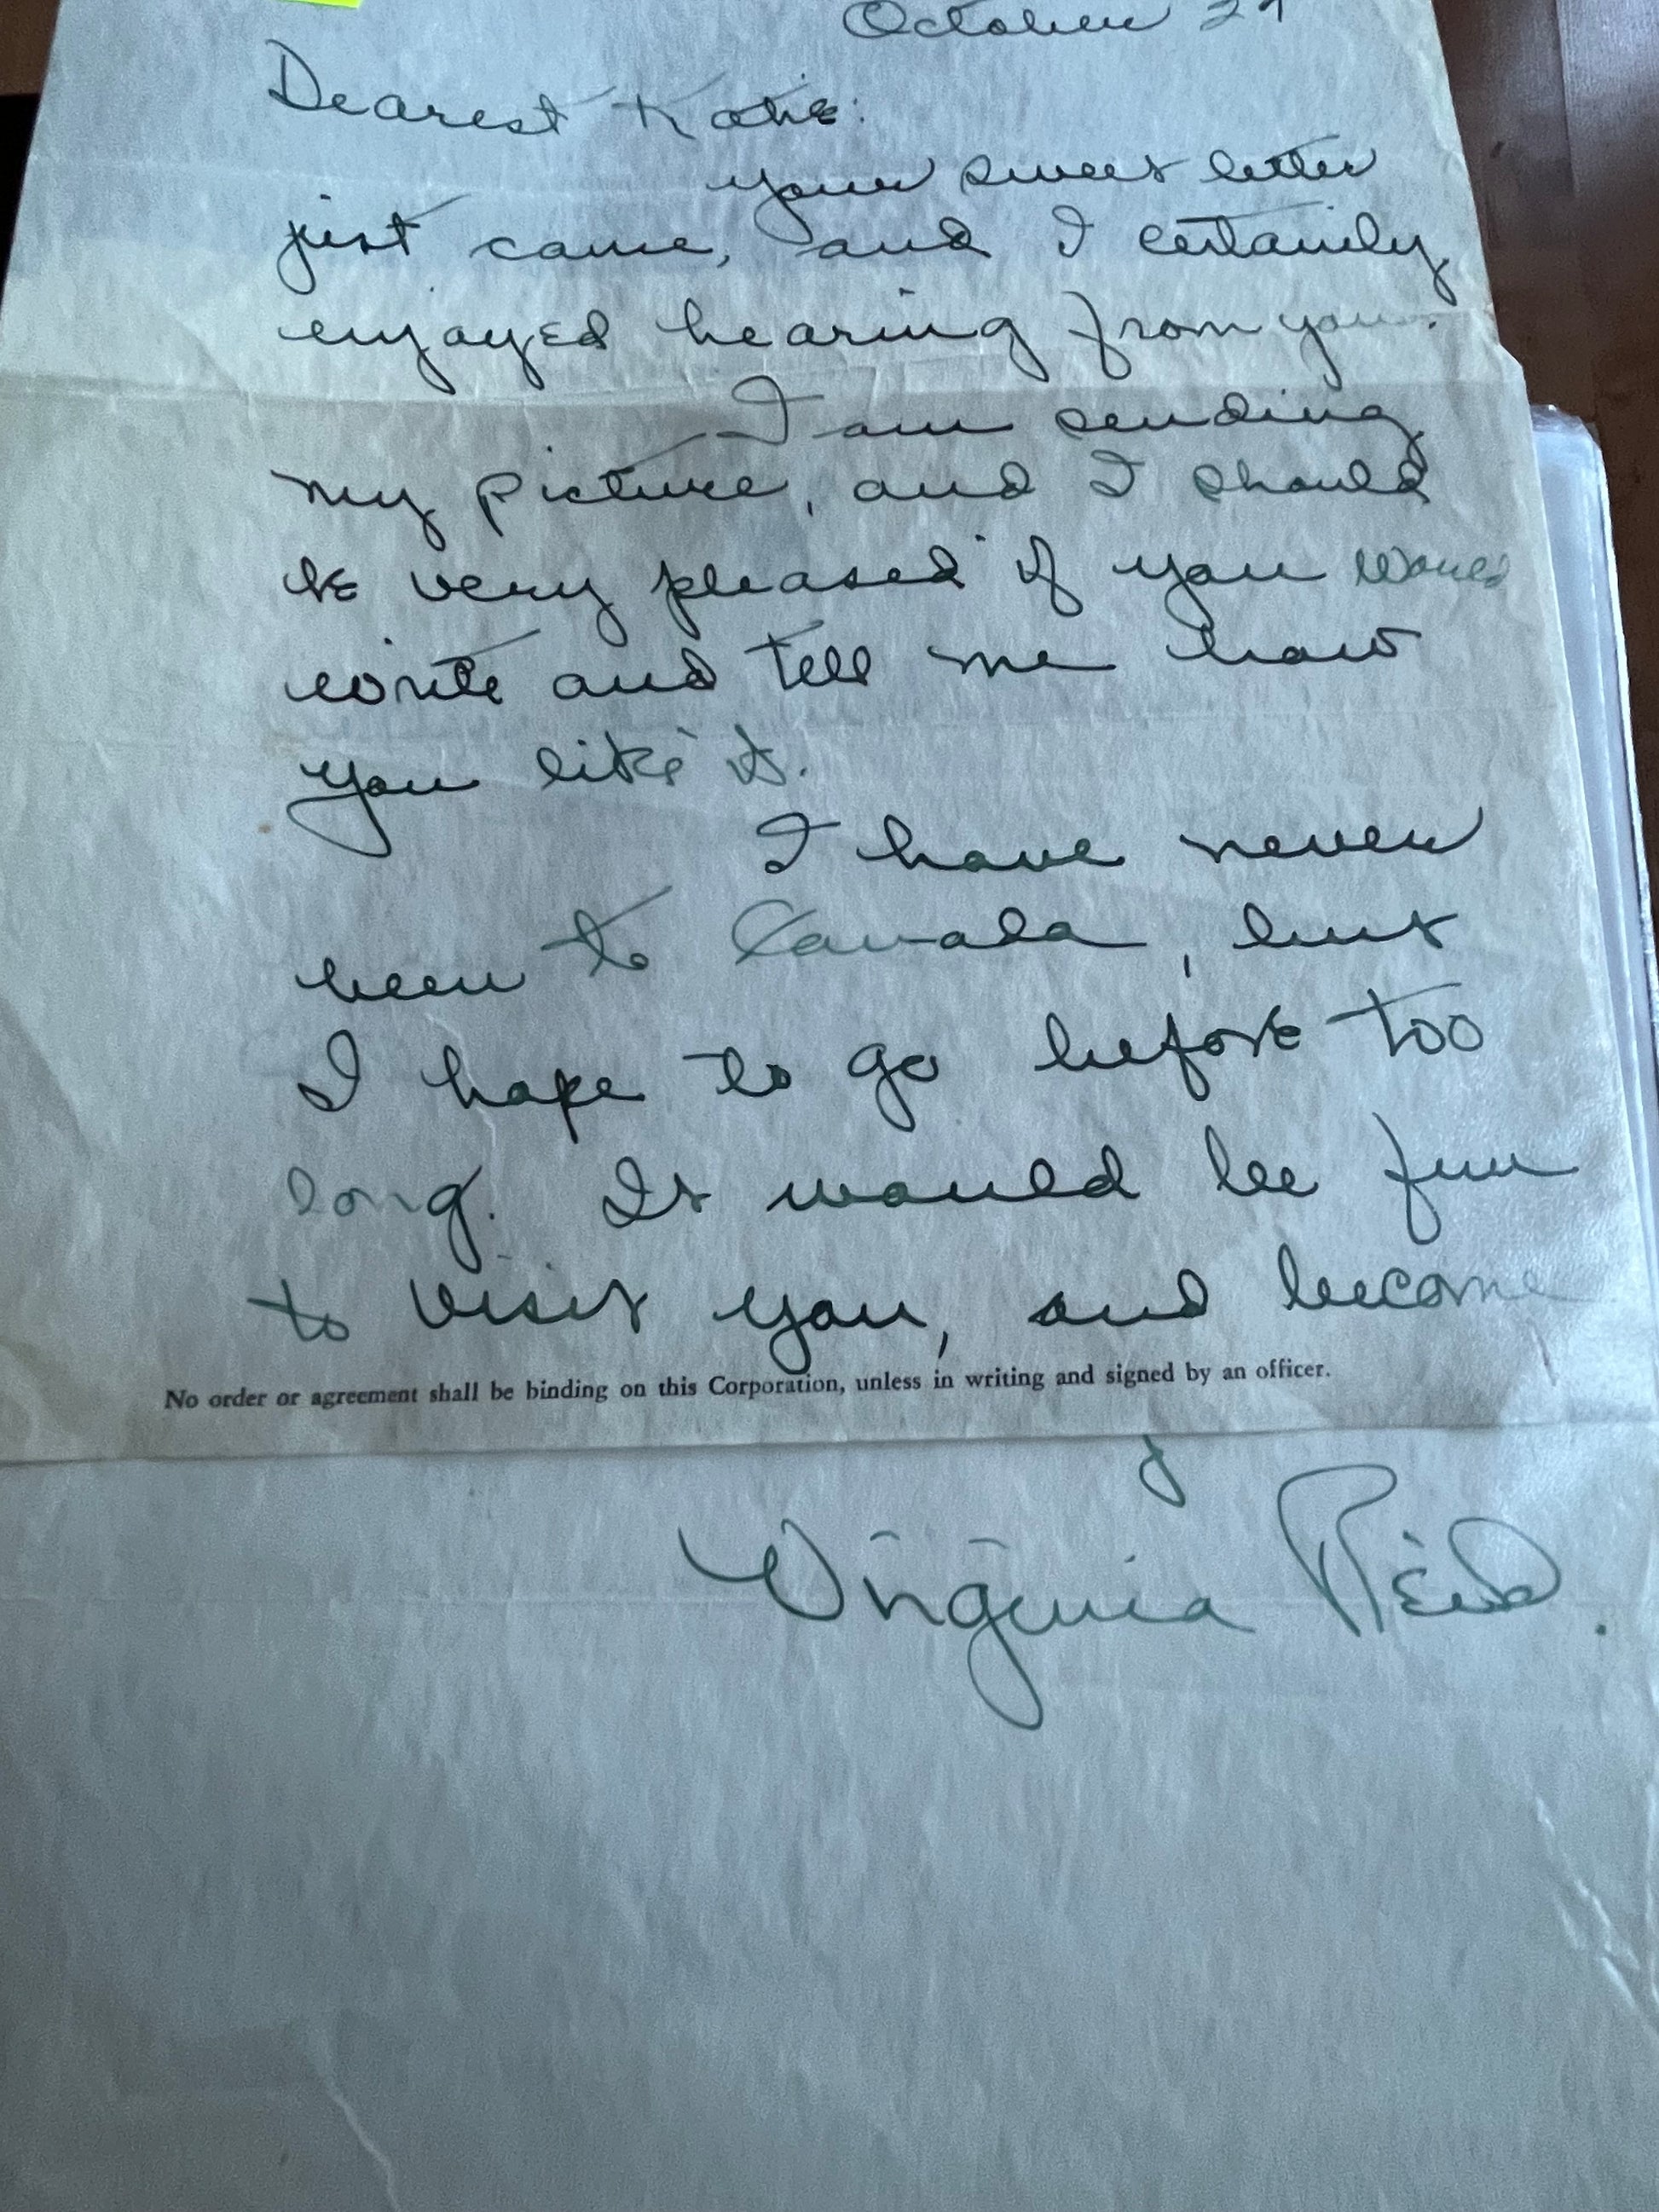 October
Dearest Katie:
your sweet letter
just came, and I certainly
enjoyed hearing from you.
I am sending
my picture, and I should
be very pleased if you would
write and tell me how
you like it.
I have never
been to Canada, but
I hope to go before too
long. It would be fun
to visit you, and become
No order or agreement shall be binding on this Corporation, unless in writing and signed by an officer.
Virginia Reid.